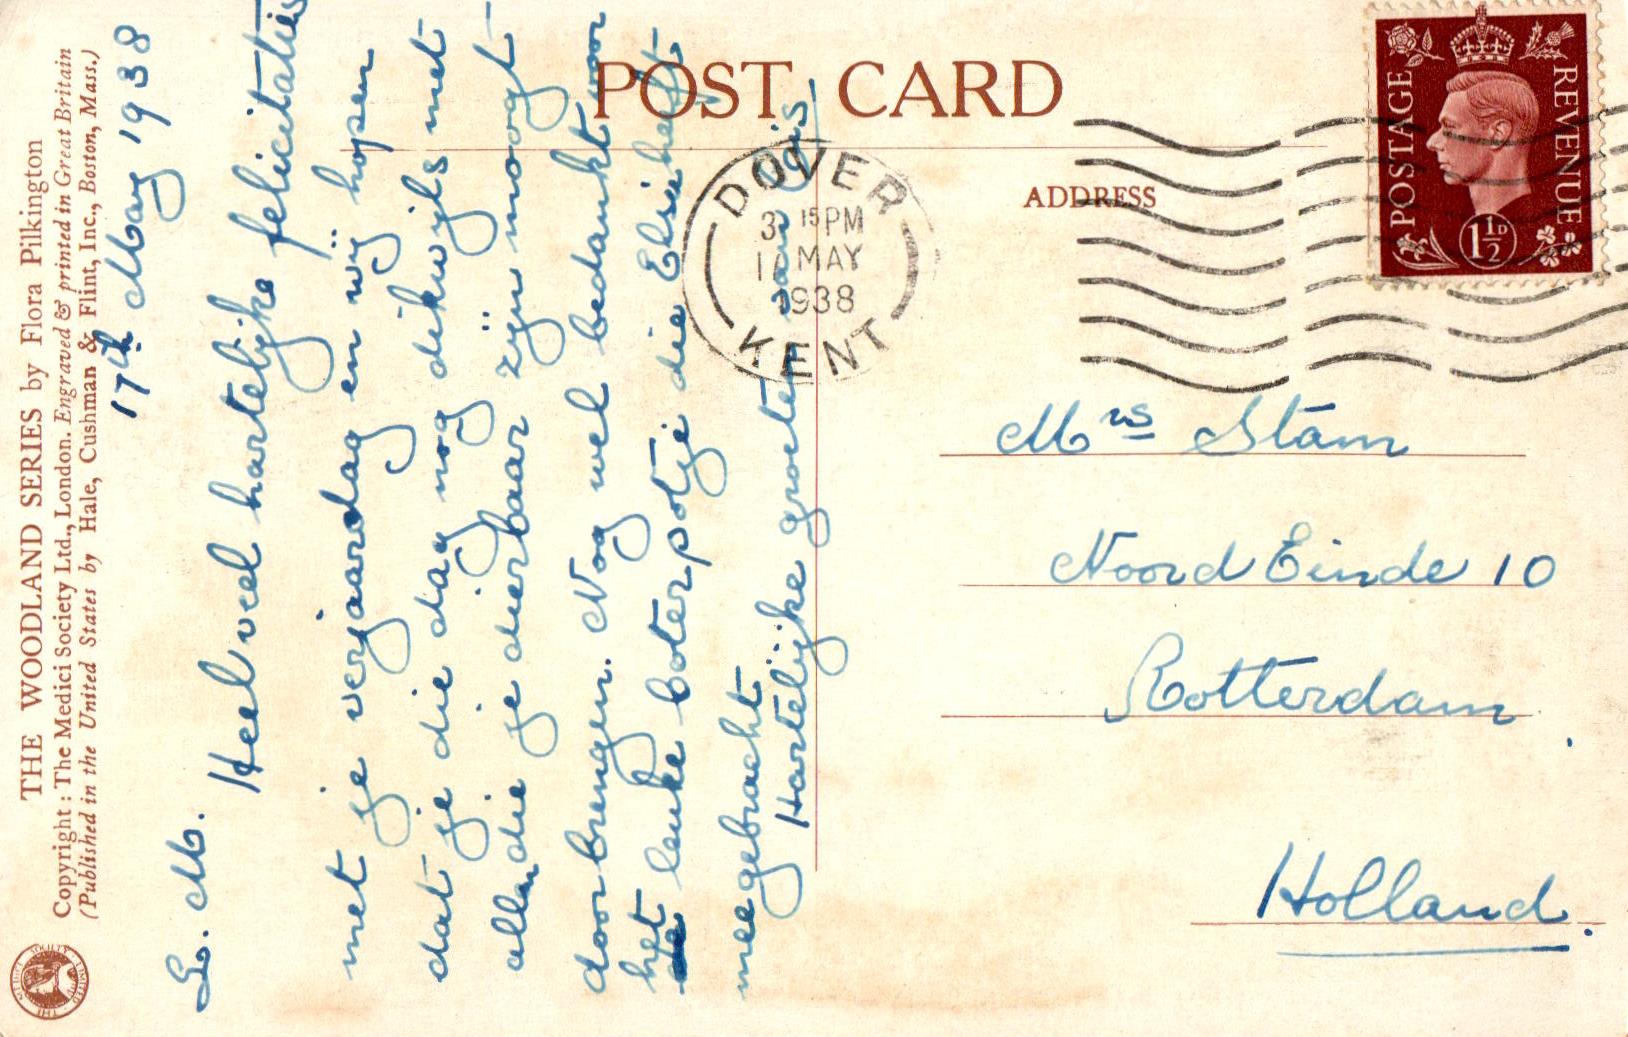 THE WOODLAND SERIES by Flora Pilkington
Copyright : The Medici Society Ltd., London. Engraved & printed in Great Britain
(Published in the United States by Hale, Cushman & Flint, Inc., Boston, Mass.)
17th May 1938
L. M.
Heel veel hartelijke felicitaties
met je verjaardag en wij hopen
dat je die dag nog dikwijls met
allen die je dierbaar zijn moogt
doorbrengen. Nog wel bedankt voor
het leuke boter potje die Elsie heeft
meegebracht
Hartelijke groeten van
POST CARD
ADDRESS
DOVER
3 15 PM
MAY
1938
KENT
POSTAGE
REVENUE
1½D
Mrs Stam
Noord Einde 10
Rotterdam
Holland.